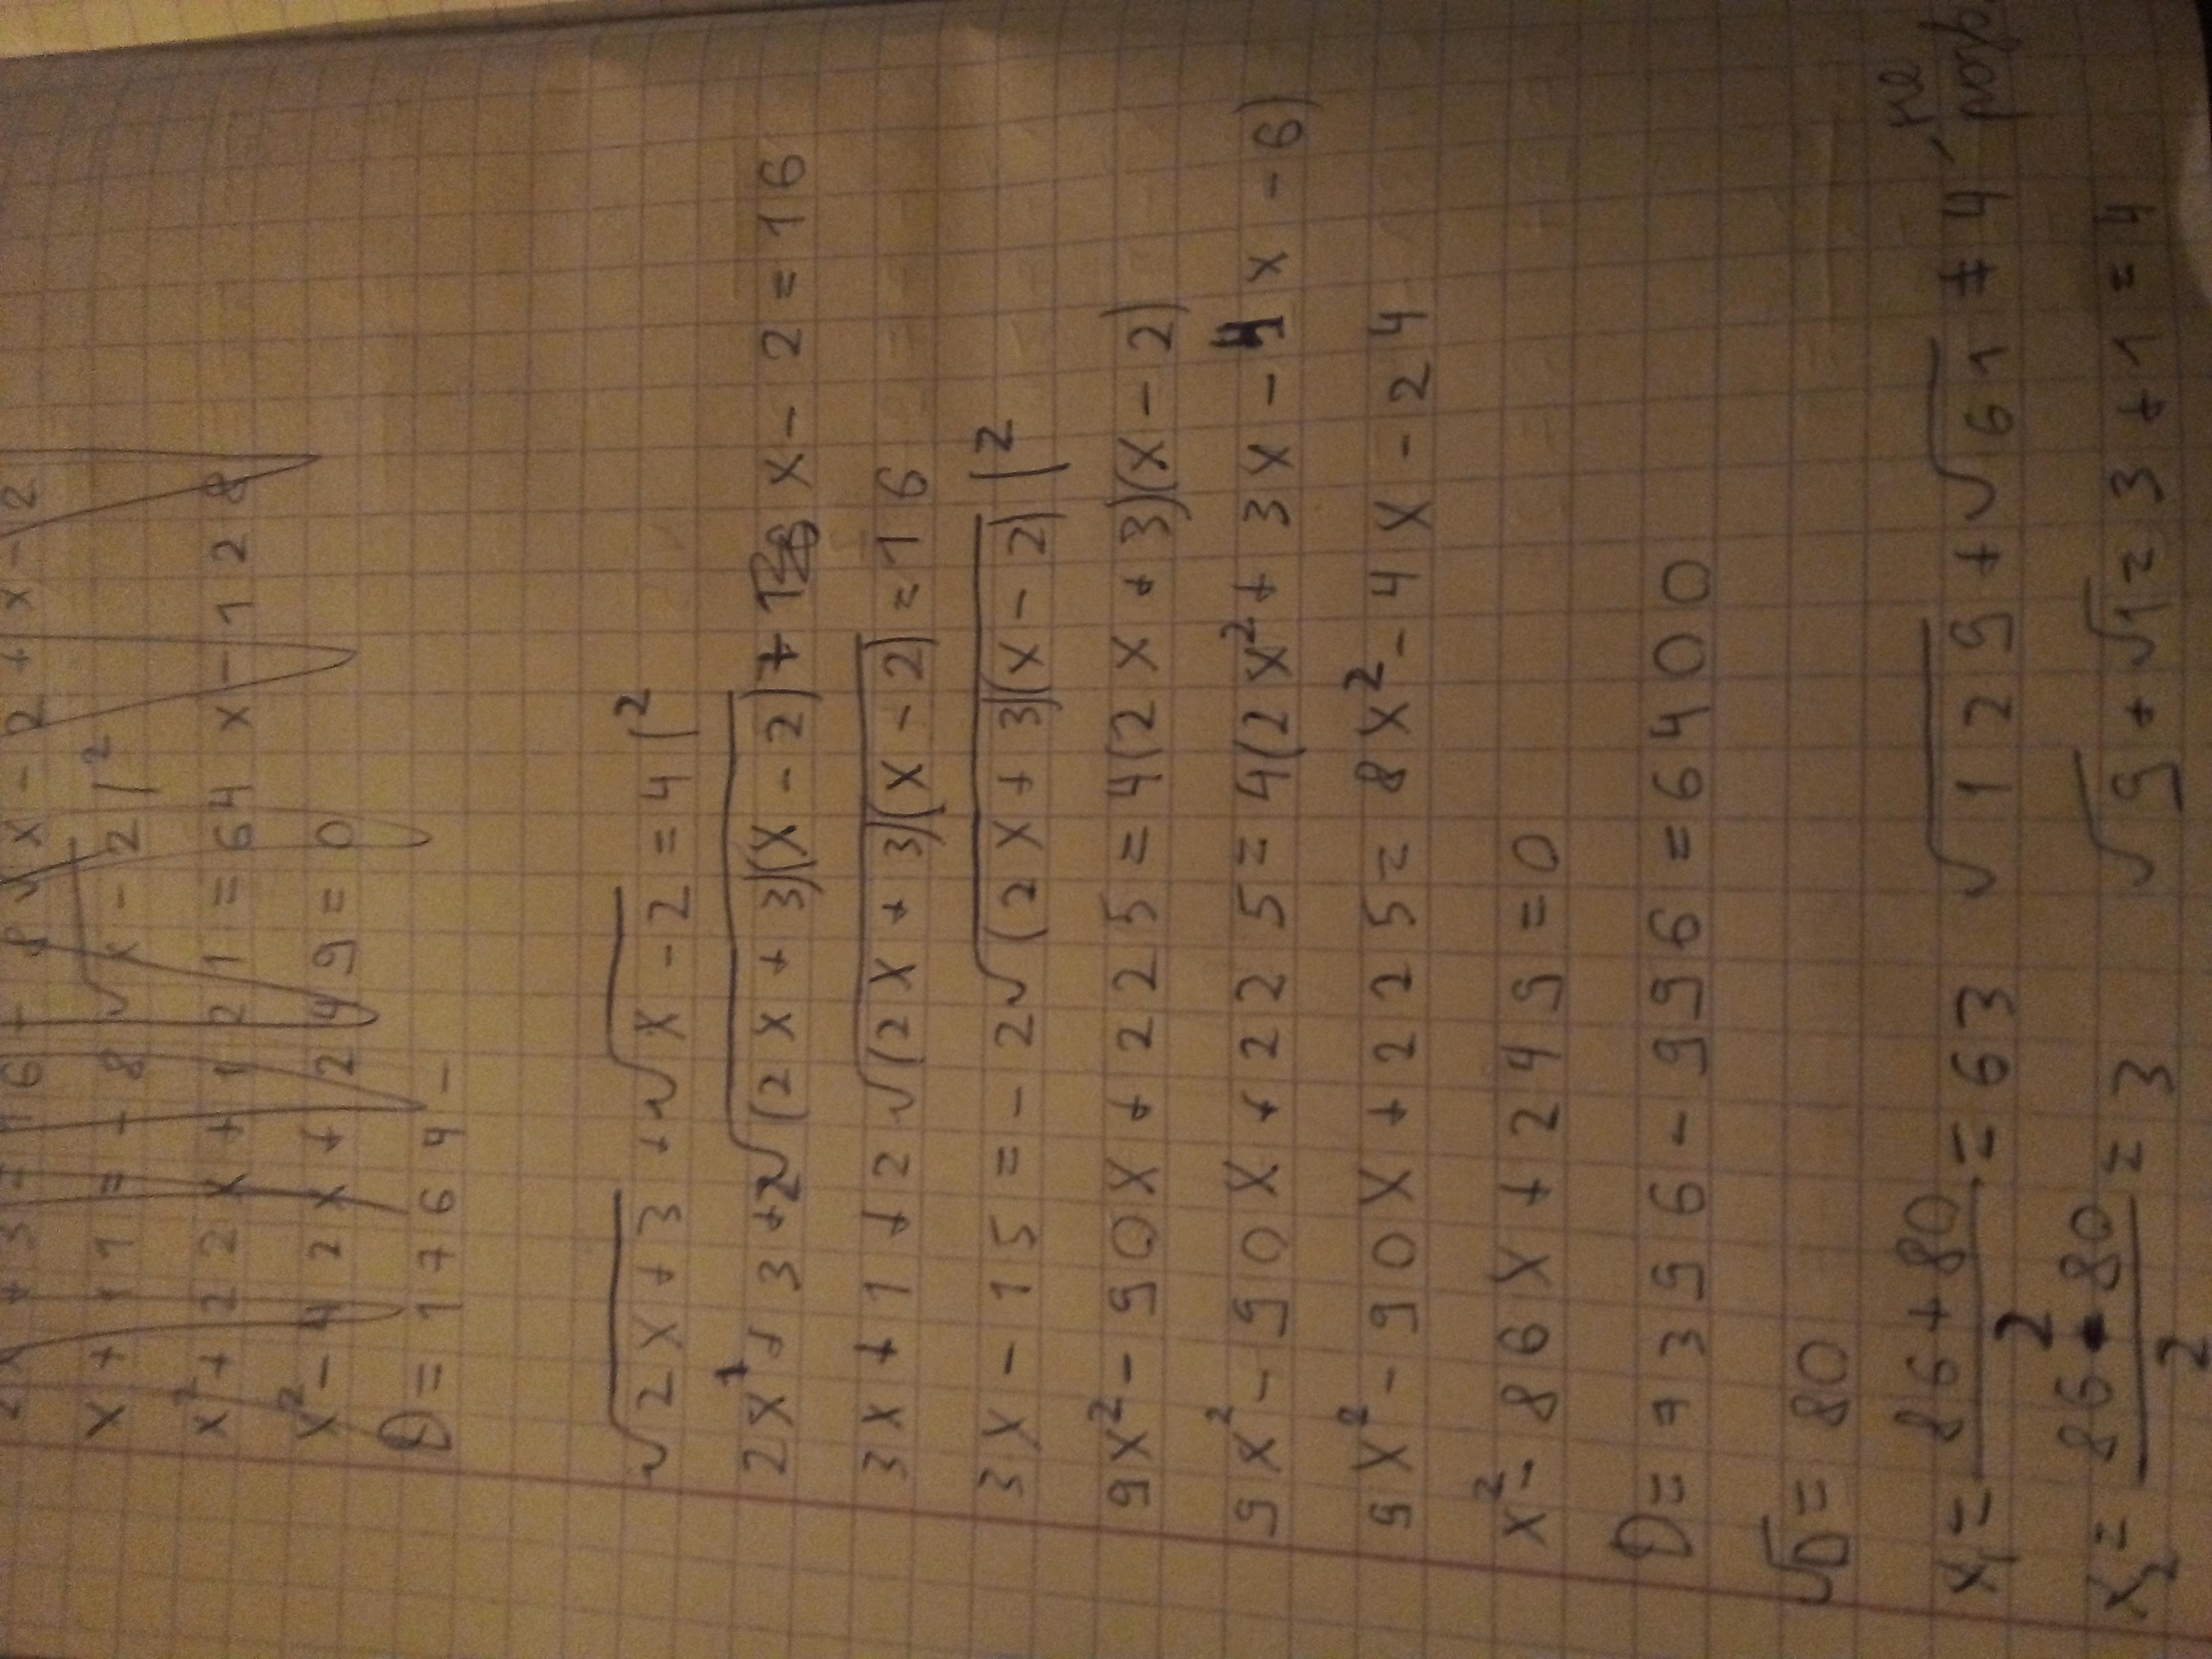 x + 11 = - 8√x - 2 |²
x² + 22x + 121 = 64x - 128
x² - 42x + 249 = 0
D = 1764 -
√2x+3 + √x-2 = 4 |²
2x + 3 + 2√(2x+3)(x-2) + x - 2 = 16
3x + 1 + 2√(2x+3)(x-2) = 16
3x - 15 = - 2√(2x+3)(x-2) |²
9x² - 90x + 225 = 4(2x+3)(x-2)
9x² - 90x + 225 = 4(2x² + 3x - 4x - 6)
9x² - 90x + 225 = 8x² - 4x - 24
x² - 86x + 249 = 0
D = 7396 - 996 = 6400
√D = 80
x₁ = 86+80/2 = 63 √129 + √61 ≠ 4, не
x₂ = 86-80/2 = 3 √9 + √1 = 3 + 1 = 4